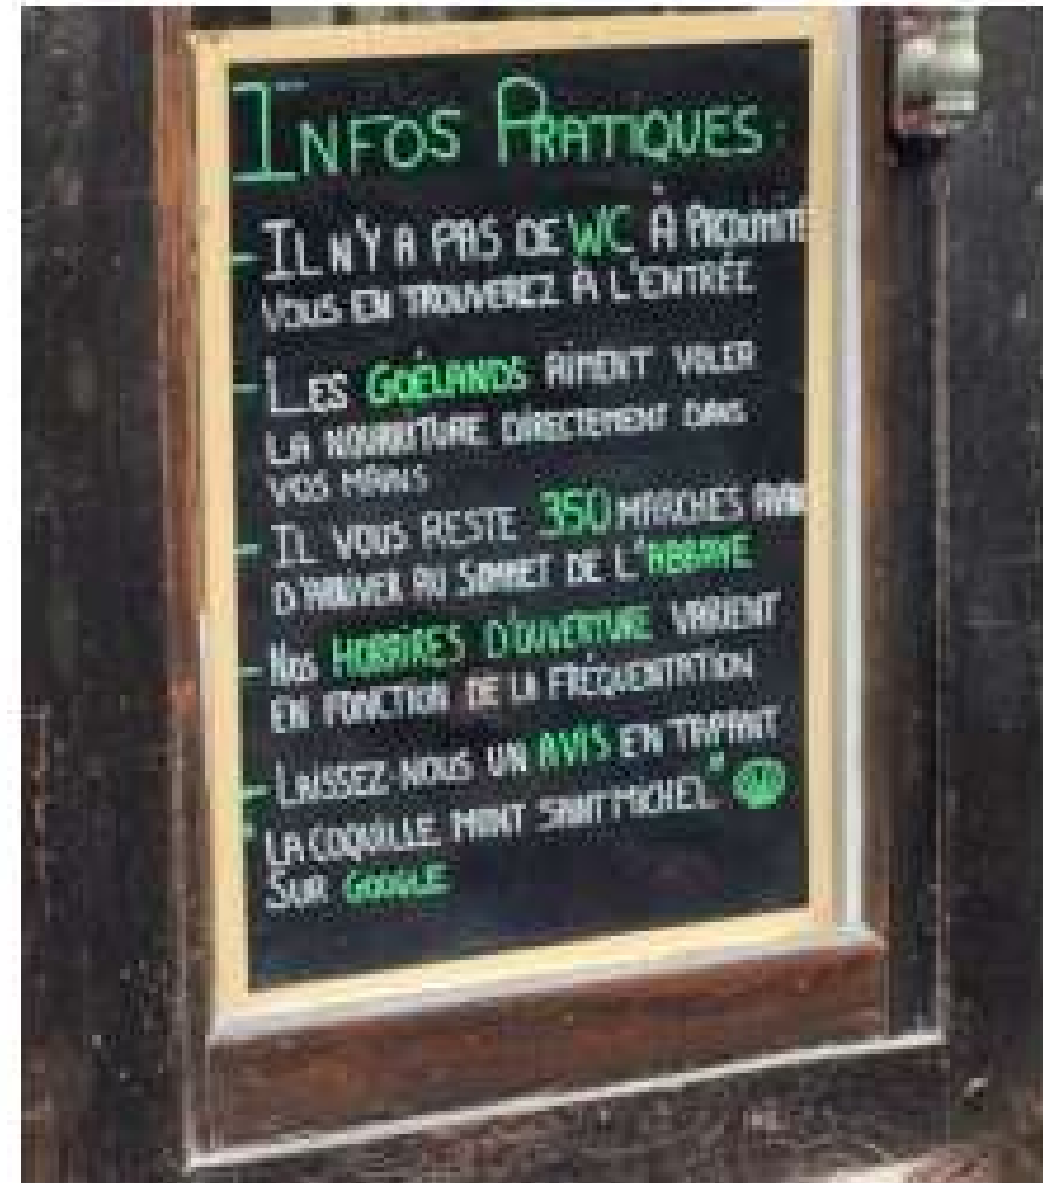 INFOS PRATIQUES
- IL N'Y A PAS DE WC À PROXIMITÉ
VOUS EN TROUVEREZ À L'ENTRÉE
- LES GOÉLANDS AIMENT VOLER
LA NOURRITURE DIRECTEMENT DANS
VOS MAINS
- IL VOUS RESTE 350 MARCHES AVANT
D'ARRIVER AU SOMMET DE L'ABBAYE
- NOS HORAIRES D'OUVERTURE VARIENT
EN FONCTION DE LA FRÉQUENTATION
- LAISSEZ-NOUS UN AVIS EN TAPANT
LA COQUILLE MONT SAINT MICHEL"
SUR GOOGLE